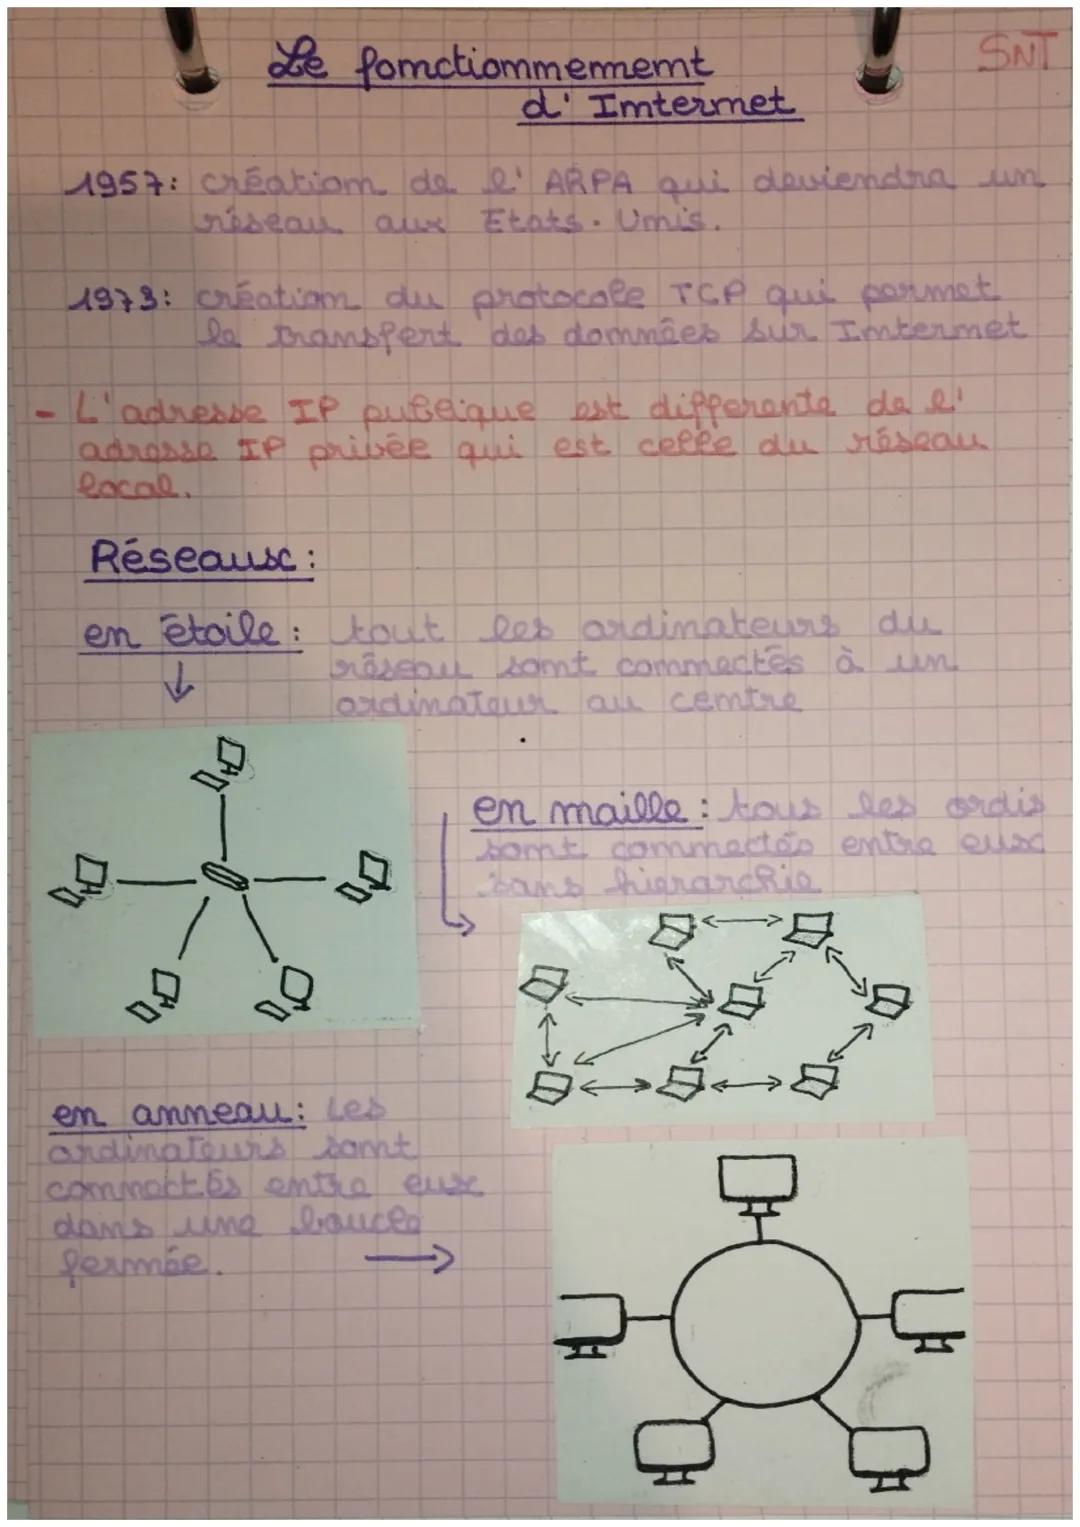 SNT
Le fonctionnement
d'Internet
1957: création de l'ARPA qui deviendra un
réseau aux Etats-Unis.
1973: création du protocole TCP qui permet
le transfert des données sur Internet
- L'adresse IP publique est differente de l'
adresse IP privée qui est celle du réseau
local.
Réseaux:
en étoile: tout les ordinateurs du
réseau sont connectés à un
ordinateur au centre
en maille: tous les ordis
sont connectés entre eux
sans hierarchie
en anneau: Les
ordinateurs sont
connectés entre eux
dans une boucle
fermée.